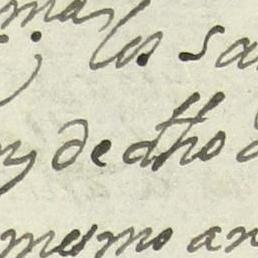 mas
; los sa
y de dho
mesmo an